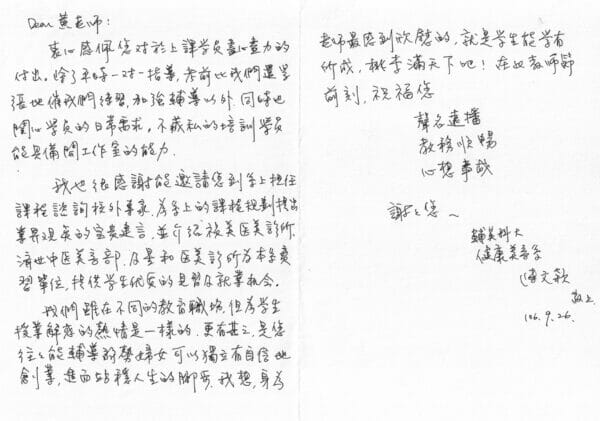 Dear 黃老師：
衷心感佩您對於上課學員盡心盡力的
付出，除了平時一對一指導，考前比我們還緊
張地催我們練習，加強輔導以外，同時也
關心學員的日常需求，不藏私的培訓學員
能具備開工作室的能力。
我也很感謝能邀請您到系上擔任
課程諮詢校外專家，為系上的課程規劃提出
業界視角的寶貴建言，並介紹
濟世中醫美容部、及景和醫美診所為本系實
習單位，提供學生優質的見習及就業机会。
我們雖在不同的教育職場，但為學生
授業解惑的熱情是一樣的，更有甚之，是您
往往能輔導弱勢婦女可以獨立有自信地
創業，進而站穩人生的腳步。我想，身為
老師最感到欣慰的，就是學生能學有
所成，桃李滿天下吧！在此教師節
前刻，祝福您
聲名遠播
教務順暢
心想事成
謝謝您～
輔英科大
健康美容系
文欽
敬上
106.9.26.